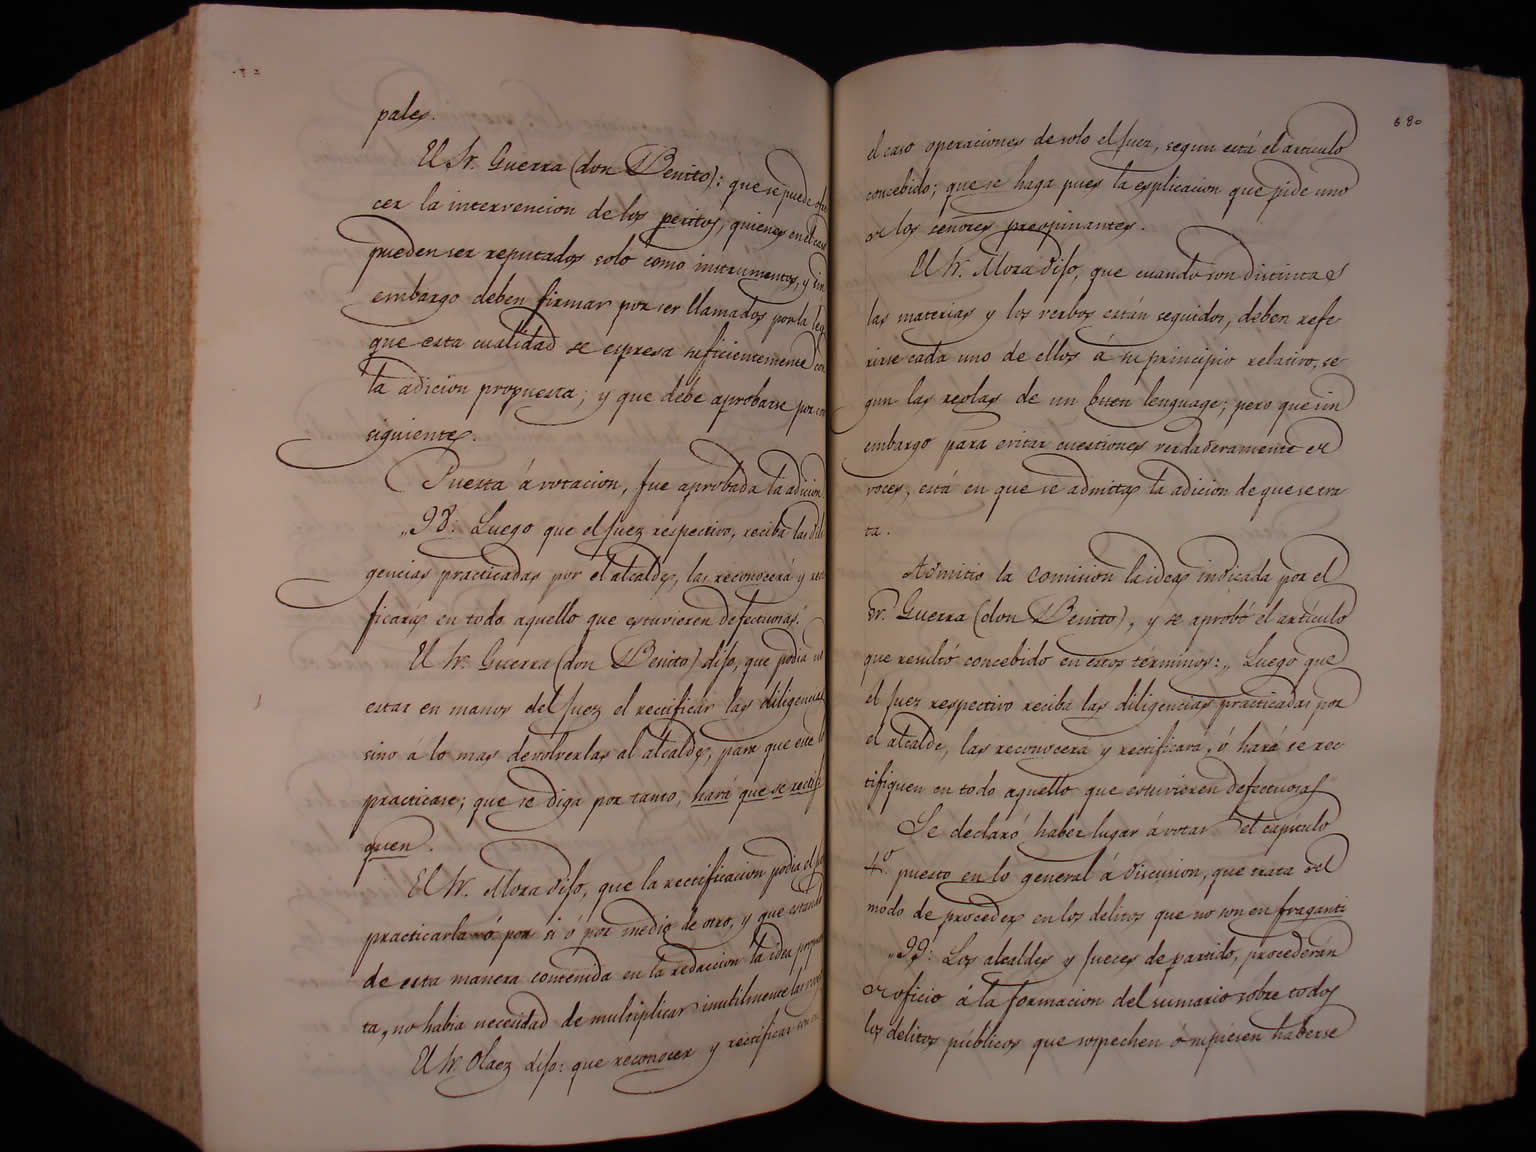 pales.
El Sr. Guerra (don Benito): que se puede
cer la intervencion de los peritos, quienes en el caso
pueden ser reputados solo como instrumentos, y sin
embargo deben firmar por ser llamados por la ley
que esta cualidad se espresa suficientemente con
la adicion propuesta; y que debe aprobarse por con
siguiente.
Puesta á votacion, fue aprobada la adicion.
„98: Luego que el Juez respectivo, reciba las dili
gencias practicadas por el alcalde, las reconocerá y rec
ficará en todo aquello que estuvieren defectuosas."
El Sr. Guerra (don Benito) dijo, que podia no
estar en manos del Juez el rectificar las diligencias
sino á lo mas devolverlas al alcalde, para que este
practicase; que se diga por tanto, hará que se rectifi
quen.
El Sr. Mora dijo, que la rectificacion podia el
practicarla ó por si ó por medio de otro, y que estando
de esta manera contenida en la redaccion la idea propues
ta, no habia necesidad de multiplicar inutilmente las
El Sr. Olaez dijo: que reconocer y rectificar son en
680
el caso operaciones de solo el Juez, segun está el articulo
concebido; que se haga pues la esplicacion que pide uno
de los señores preopinantes.
El Sr. Mora dijo, que cuando son distintas
las materias y los verbos están seguidos, deben refe
rirse cada uno de ellos á su principio relativo, se
gun las reglas de un buen lenguage; pero que sin
embargo para evitar cuestiones verdaderamente de
voces, está en que se admita la adicion de que se tra
ta.
Admitio la comision la idea indicada por el
Sr. Guerra (don Benito), y se aprobó el artículo
que resultó concebido en estos términos: „Luego que
el Juez respectivo reciba las diligencias practicadas por
el alcalde, las reconocerá y rectificará, ó hará se rec
tifiquen en todo aquello que estuvieren defectuosas
Se declaró haber lugar á votar el capítulo
4º puesto en lo general á discusion, que trata del
modo de proceder en los delitos que no son en fraganti
„99: Los alcaldes y jueces de partido, procederán
de oficio á la formacion del sumario sobre todos
los delitos públicos que sospechen ó supiesen haberse